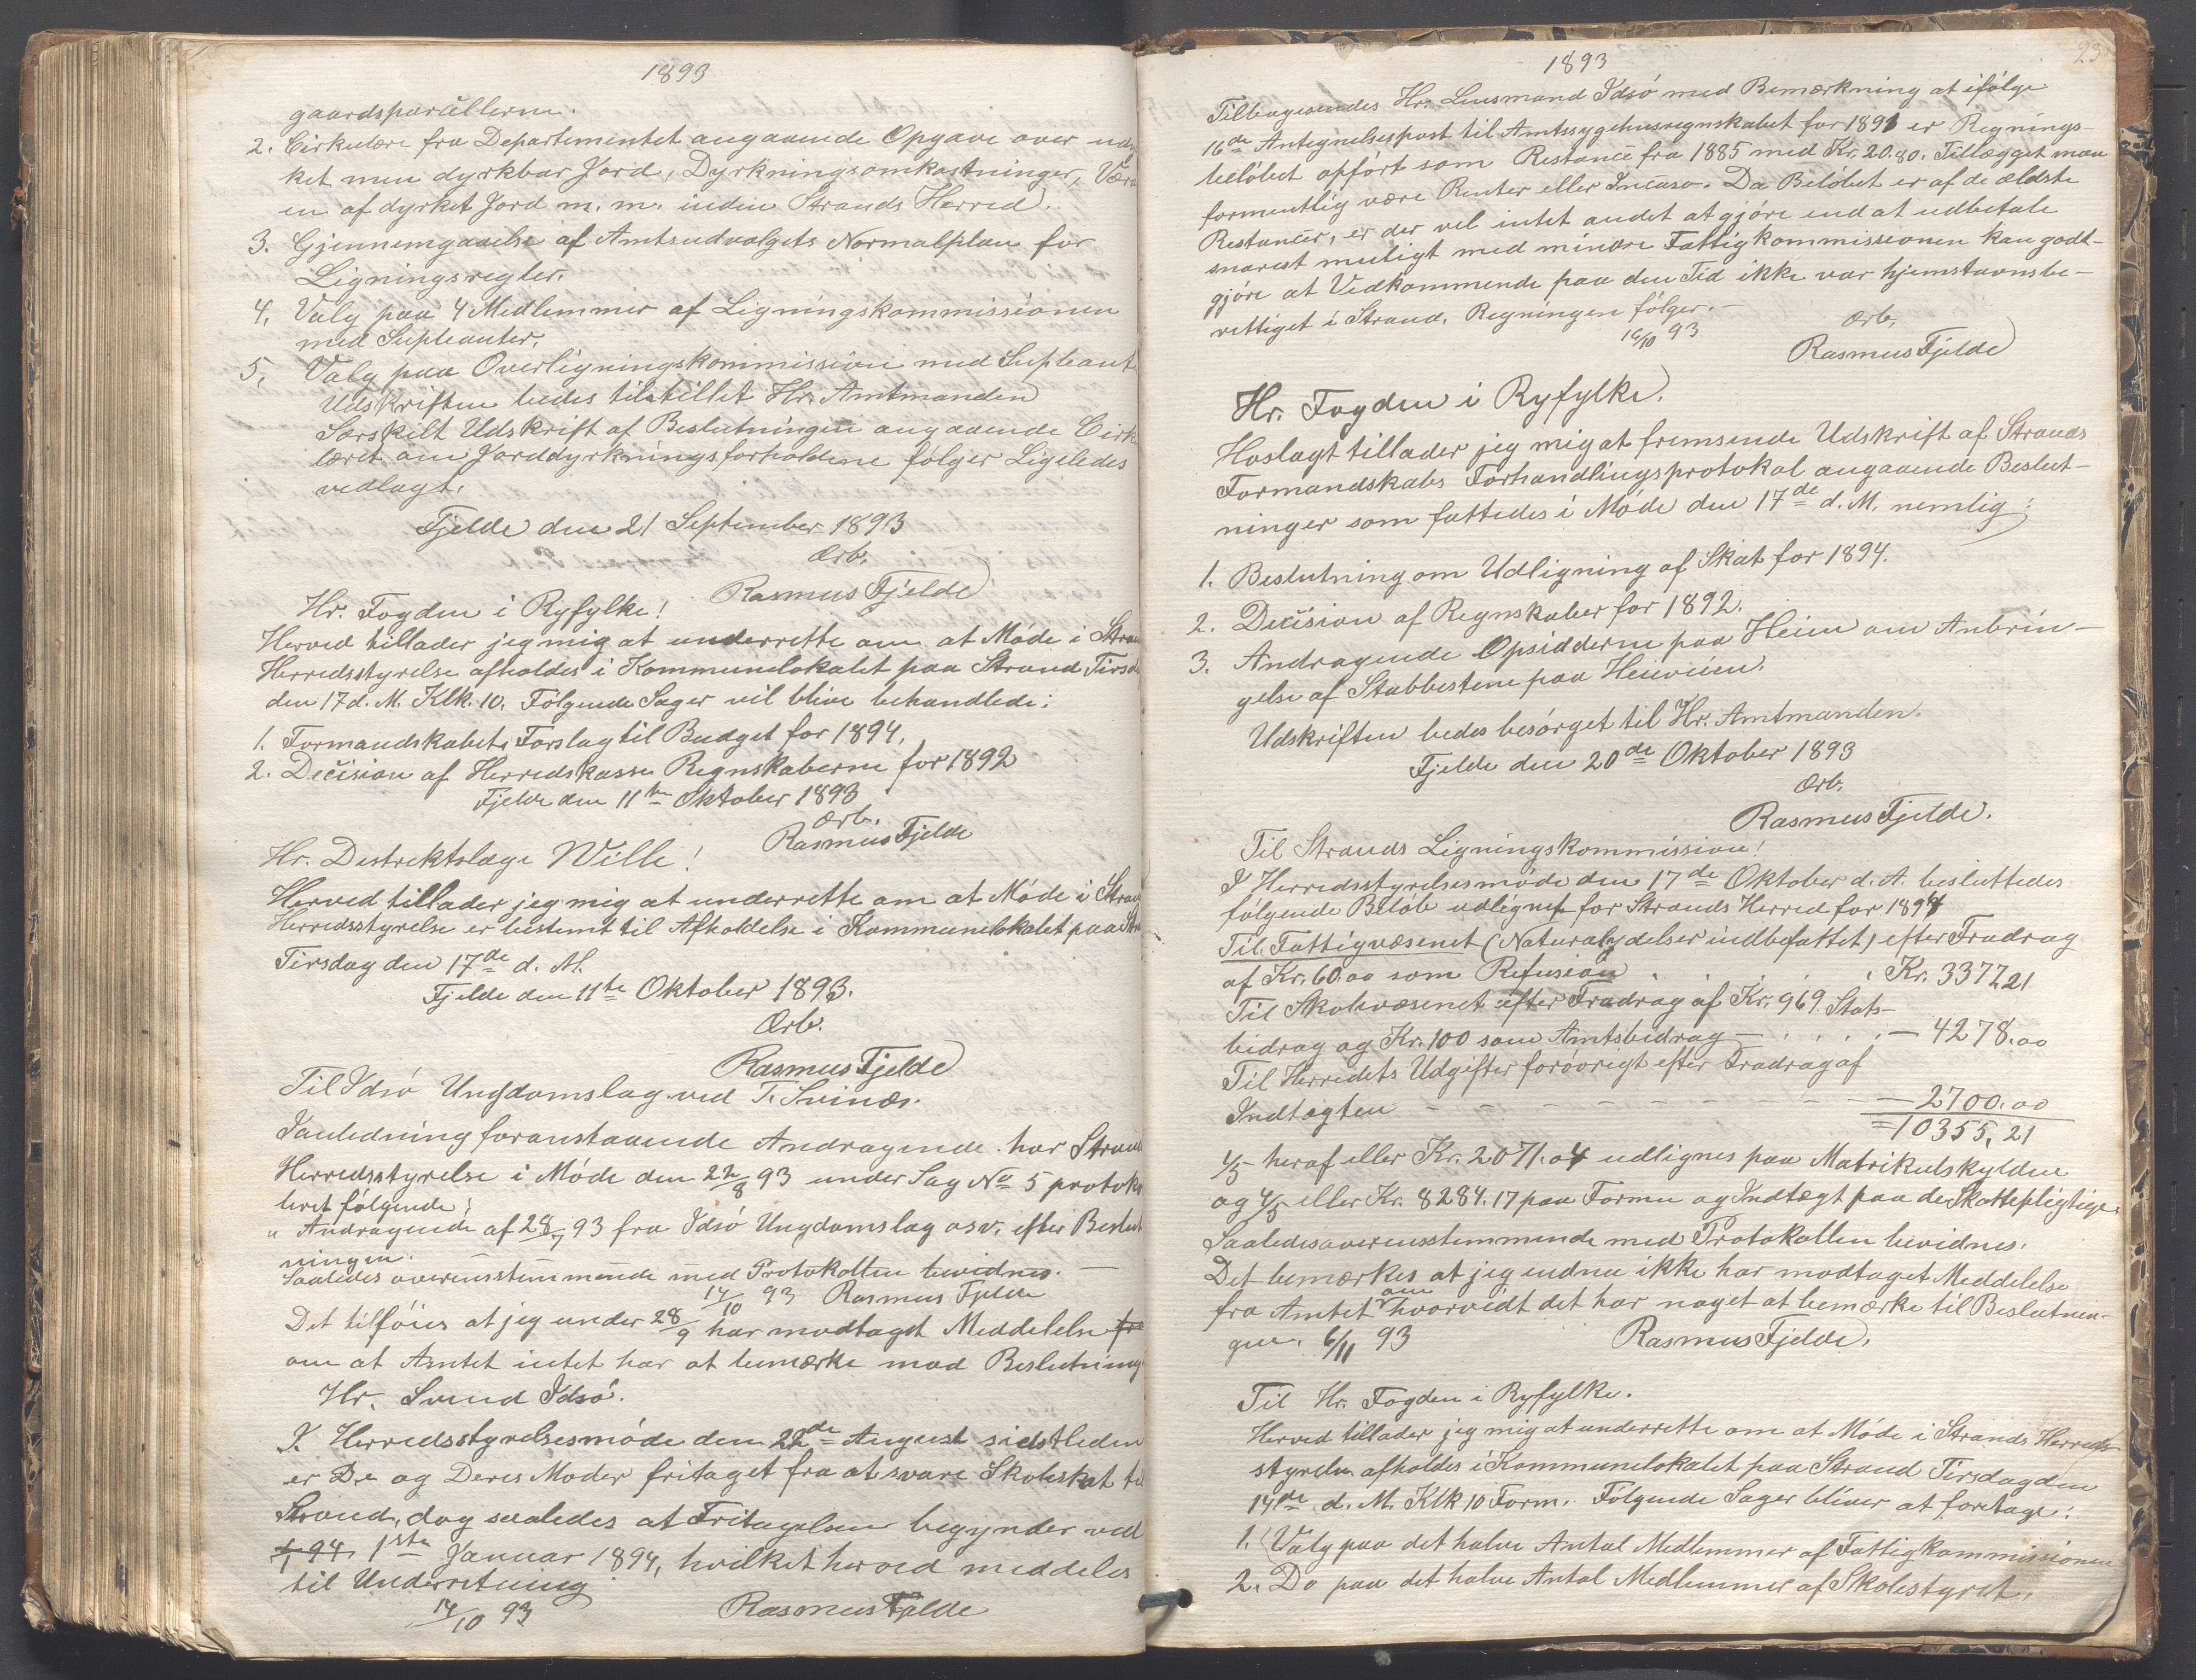 1893
gaardsparcellerne.
2. Cirkulære fra Departementet angaaende Opgave over udyr
ket men dyrkbar Jord, Dyrkningsomkostninger, Værdi
en af dyrket Jord m. m. inden Strands Herred.
3. Gjennemgaaelse af Amtsudvalgets Normalplan for
Ligningsregler.
4. Valg paa 4 Medlemmer af Ligningskommissionen
med Supleanter.
5. Valg paa Overligningskommission med Supleant
Udskriften bedes tilstillet Hr. Amtmanden
Særskilt Udskrift af Beslutningen angaaende Cirku
læret om Jorddyrkningsforholdene følger Ligeledes
vedlagt.
Fjelde den 21 September 1893
Ærb.
Rasmus Fjelde
Hr. Fogden i Ryfylke!
Herved tillader jeg mig at underrette om at Møde i Stran
Herredsstyrelse afholdes i Kommunelokalet paa Strand Tirsda
den 17 d. M. Klk. 10. Følgende Sager vil blive behandlede:
1. Formandskabets Forslag til Budget for 1894.
2. Decision af Herredskasse Regnskaberne for 1892
Fjelde den 11te Oktober 1893
Ærb.
Rasmus Fjelde
Hr. Destrektslæge Wille!
Herved tillader jeg mig at underrette om at Møde i Stran
Herredsstyrelse er bestemt til Afholdelse i Kommunelokalet paa Str
Tirsdag den 17de d. M.
Fjelde den 11te Oktober 1893.
Ærb.
Rasmus Fjelde
Til Idsø Ungdomslag ved T. Svines.
I anledning foranstaaende Andragende har Strand
Herredsstyrelse i Møde den 22/8 93 under Sag No 5 protoko
leret følgende:
" Andragende af 28/7 93 fra Idsø Ungdomslag osv. efter Beslut
ningen.
Saaledes overensstemmende med Protokollen bevidnes. —
14/10 93 Rasmus Fjelde
Det tilføies at jeg under 28/9 har modtaget Meddelelse fr
om at Amtet intet har at bemærke mod Beslutning
Hr. Svend Idsø.
I Herredsstyrelsesmøde den 22de August sidstleden
er De og Deres Moder fritaget fra at svare Skoleskat til
Strand, dog saaledes at Fritagelsen begynder ved
1/1 94. 1ste Januar 1894, hvilket herved meddeles
til Underretning
14/10 93 Rasmus Fjelde
23
1893
Tilbagesendes Hr. Lensmand Idsø med Bemærkning at ifølge
16de Antegnelsespost til Amtssygehusregnskabet for 1891 er Regnings-
beløbet opført som Restance fra 1885 med Kr. 20.80. Tillægget maa
formentlig være Renter eller Incaso. Da Beløbet er af de ældste
Restancer, er der vel intet andet at gjøre end at udbetale
snarest muligt med mindre Fattigkommissionen kan godt-
gjøre at Vedkommende paa den Tid ikke var hjemstavnsbe-
rettiget i Strand. Regningen følger. —
16/10 93 Ærb.
Rasmus Fjelde
Hr. Fogden i Ryfylke.
Hoslagt tillader jeg mig at fremsende Udskrift af Strands
Formandskabs Forhandlingsprotokol angaaende Beslut-
ninger som fattedes i Møde den 17de d. M. nemlig:
1. Beslutning om Udligning af Skat for 1894.
2. Decision af Regnskaber for 1892.
3. Andragende Opsidderne paa Heien om Anbrin-
gelse af Stabbestene paa Heieveien.
Udskriften bedes besørget til Hr. Amtmanden.
Fjelde den 20de Oktober 1893
Ærb.
Rasmus Fjelde.
Til Strands Ligningskommission!
I Herredsstyrelsesmøde den 17de Oktober d. A. besluttedes
følgende Beløb udlignet for Strands Herred for 1894
Til Fattigvæsenet (Naturalydelser indbefattet) efter Fradrag
af Kr. 60.00 som Refusion . . . . . . Kr. 3377.21
Til Skolevæsenet efter Fradrag af Kr. 969 Stats-
bidrag og Kr. 100 som Amtsbidrag — . . . . — 4278.00
Til Herredets Udgifter forøvrigt efter Fradrag af
Indtægten — — — — — — — — — — 2700.00
= 10355,21
1/5 heraf eller Kr. 2071.04 udlignes paa Matrikulskylden
og 4/5 eller Kr. 8284.17 paa Formue og Indtægt paa de Skattepligtige.
Saaledes overensstemmende med Protokollen bevidnes.
Det bemærkes at jeg endnu ikke har modtaget Meddelelse
fra Amtet om hvorvidt det har noget at bemærke til Beslutnin-
gen. 6/11 93 Rasmus Fjelde.
Til Hr. Fogden i Ryfylke.
Herved tillader jeg mig at underrette om at Møde i Strands Herreds-
styrelse afholdes i Kommunelokalet paa Strand Tirsdag den
14de d. M. Klk 10 Form. Følgende Sager bliver at foretage:
1. Valg paa det halve Antal Medlemmer af Fattigkommissionen
2. Do paa det halve Antal Medlemmer af Skolestyret.